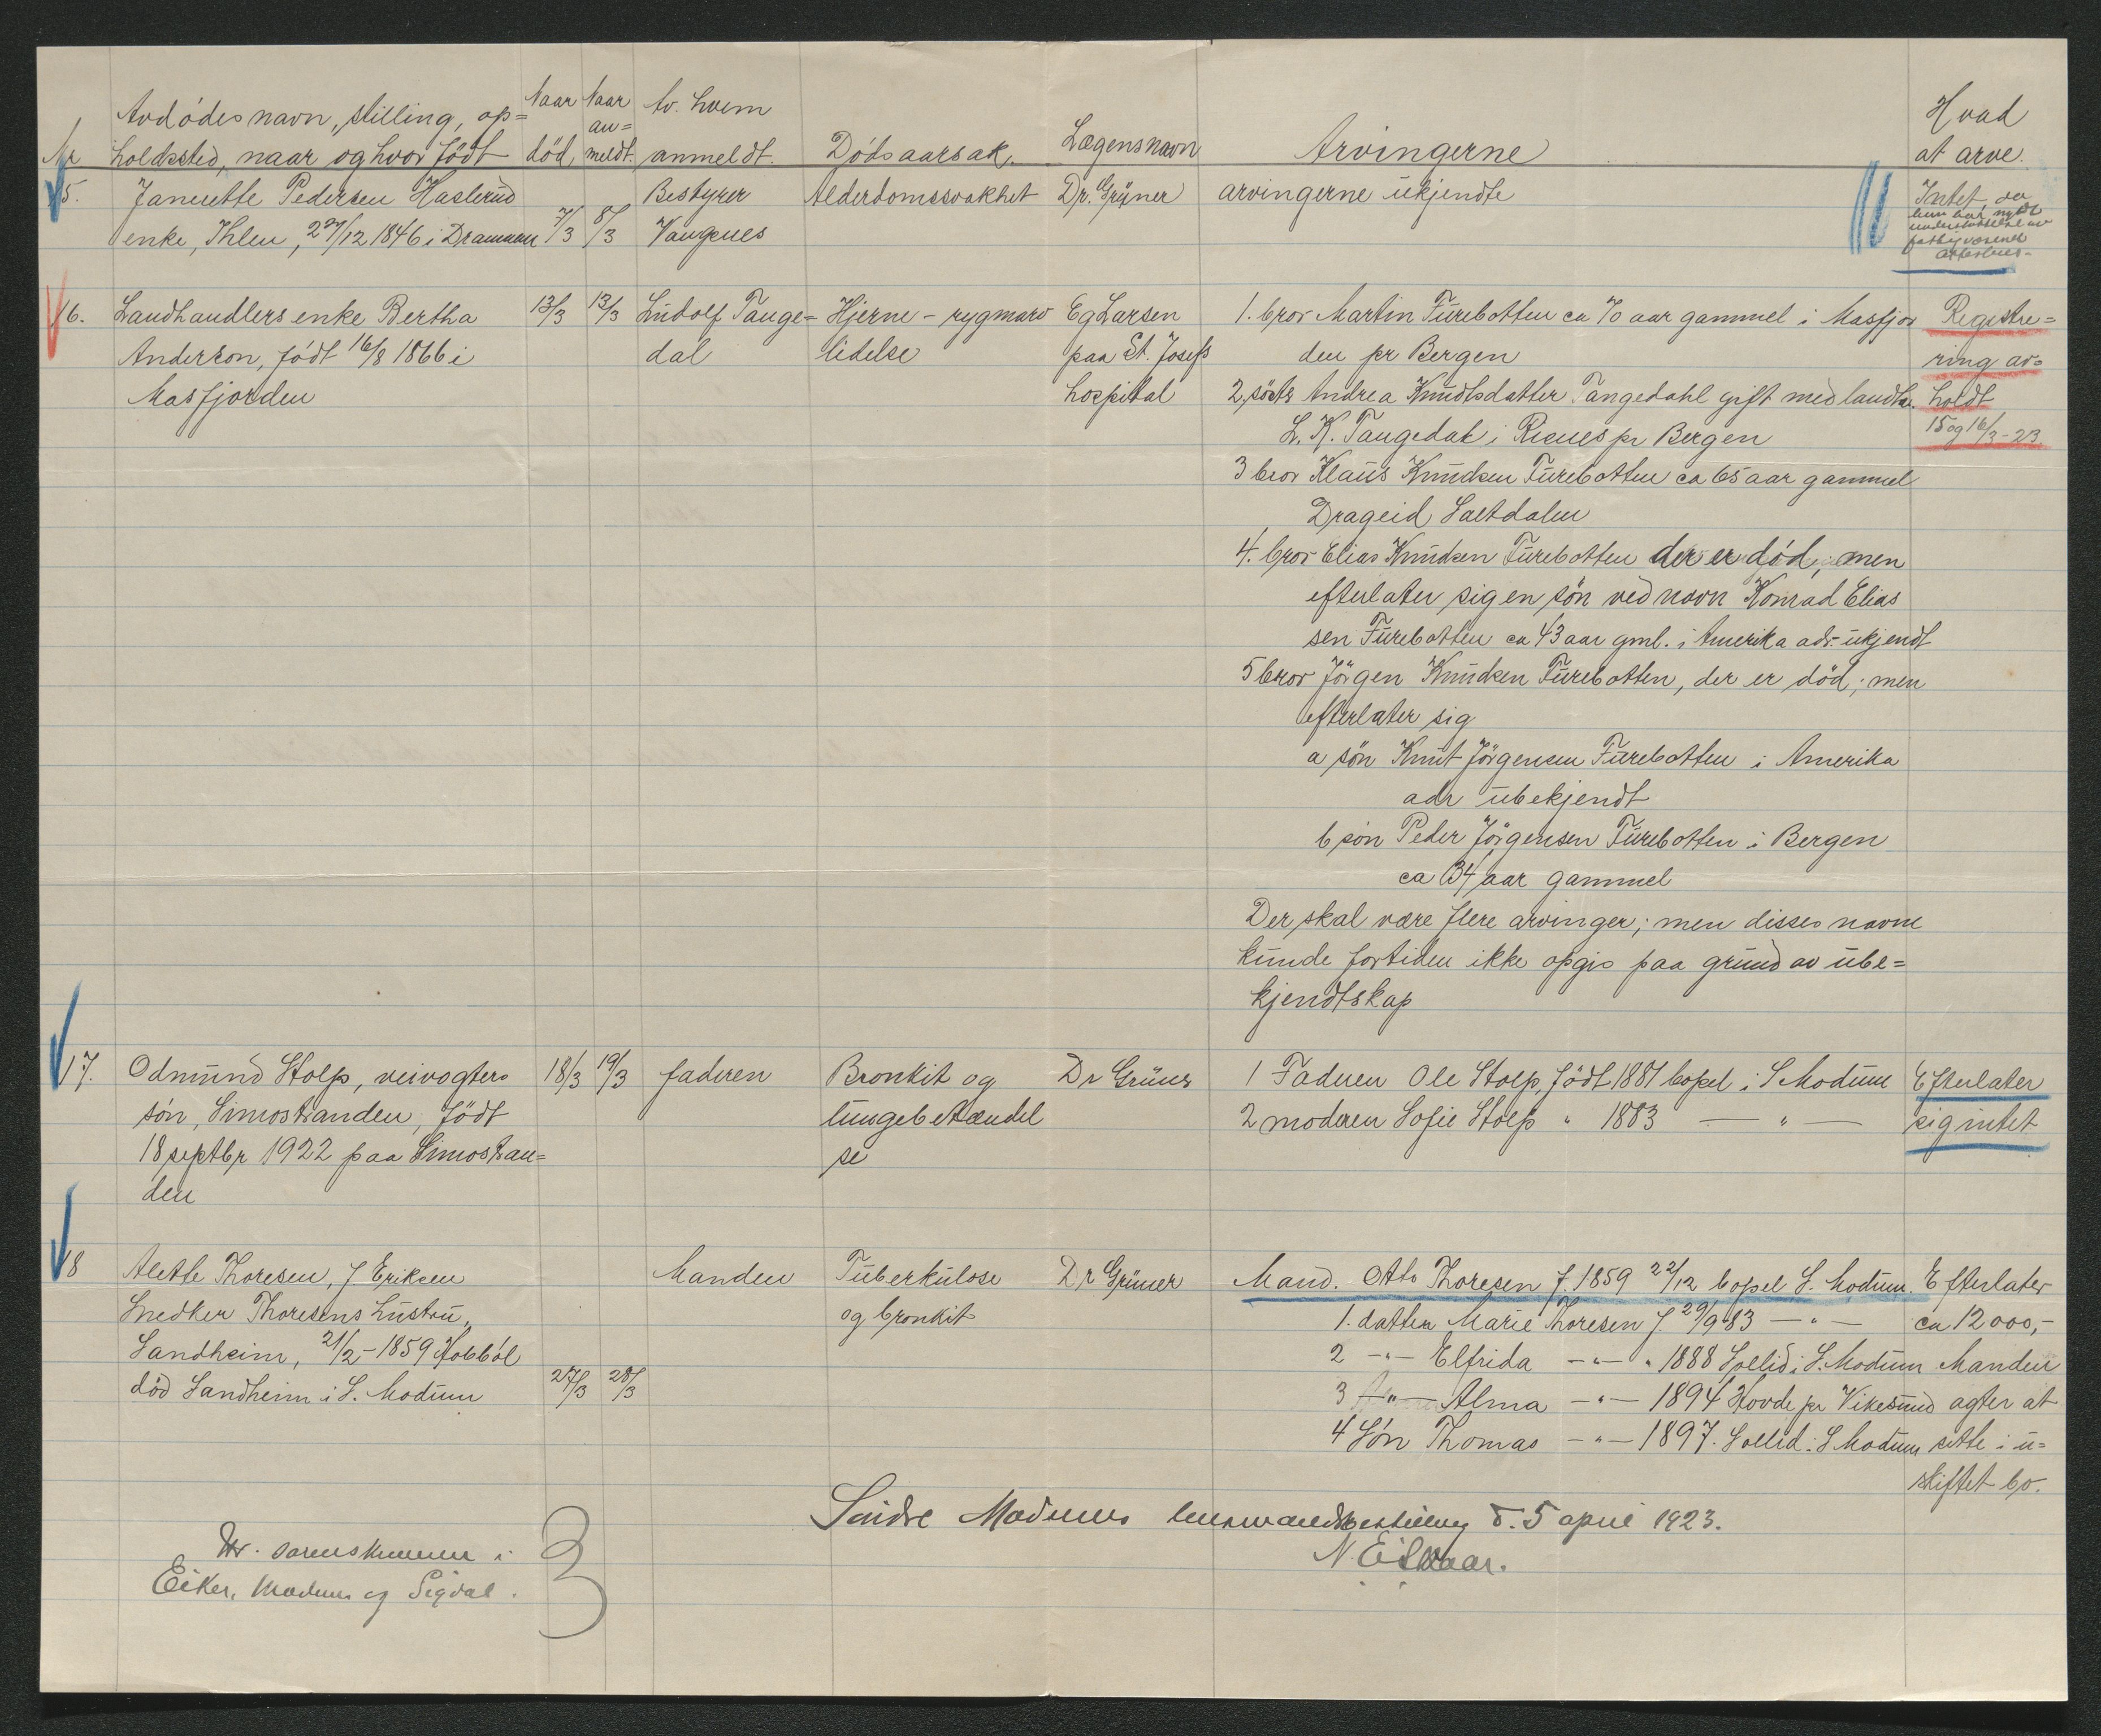 Nr
Avdødes navn, stilling, op=
holdssted, naar og hvor født
Naar
død
Naar
an=
meldt.
Av. hvem
anmeldt.
Dødsaarsak.
Lægens navn
Arvingerne
Hvad
at arve.
15.
Jannette Pedersen Haslerud
enke, Ihlen, 27/12 1846 i Drammen
7/3
8/3
Bestyrer
Vangnes
Alderdomssvakhet
Dr. Grüner
arvingerne ukjendte
Intet, da
hun har nydt
understøttelse av
fattigvæsenet
16.
Landhandlers enke Bertha
Anderson, født 16/8 1866 i
Masfjorden
13/3
13/3
Ludolf Tange=
dal
Hjerne - rygmarv
lidelse
Eg Larsen
paa St. Josefs
hospital
1. bror Martin Furebotten ca 70 aar gammel i Masfjor
den pr Bergen
2. søster Andrea Knudtsdatter Tangedahl gift med landh.
L. K. Tangedal i Risnes pr Bergen
3 bror Klaus Knudsen Furebotten ca 65 aar gammel
Drageid Saltdalen
4. bror Elias Knudsen Furebotten der er død; men
efterlater sig en søn ved navn Konrad Elias
sen Furebotten ca 43 aar gml. i Amerika adr. ukjendt
5 bror Jörgen Knudsen Furebotten, der er död; men
efterlater sig
a sön Knut Jörgensen Furebotten i Amerika
adr ubekjendt
b sön Peder Jörgensen Furebotten i Bergen
ca 34 aar gammel
Der skal være flere arvinger; men disses navne
kunde fortiden ikke opgis paa grund av ube=
kjendtskap
Registre=
ring av=
holdt
15 og 16/3 - 23
17.
Odmund Stolp, veivogters
søn, Simostranden, født
18 septbr 1922 paa Simostran=
den
18/3
19/3
faderen
Bronkit og
lungebetændel
se
Dr Grüner
1 Faderen Ole Stolp, født 1881 bopel i S Modum
2 moderen Sofie Stolp " 1883 — " —
Efterlater
sig intet
18
Alette Thoresen, f Eriksen
Snedker Thoresens hustru,
Sandheim, 21/2 - 1859 Hobbøl
død Sandheim i S. Modum
27/3
28/3
Manden
Tuberkulose
og bronkit
Dr Grüner
Mand. Otto Thoresen f. 1859 22/12 bopel S. Modum.
1. datter Marie Thoresen f. 29/9 83 — " —
2 - " - Elfrida - " - " 1888 Sollid i S. Modum
3 - " - Alma - " - 1894 Hovde pr Vikesund
4 Søn Thomas - " - 1897. Sollid i S Modum
Efterlater
ca 12000,-
Manden
agter at
sitte i u=
skiftet bo.
Søndre Modums lensmandsbestilling d. 5 april 1923.
N. Eikaar.
Hr. sorenskriveren i
Eiker, Modum og Sigdal.
3